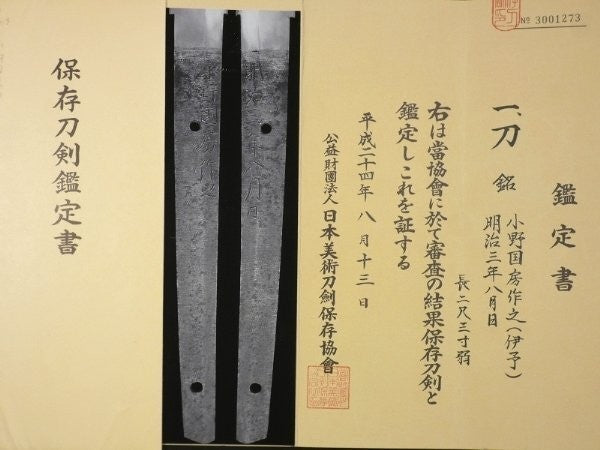 № 3001273
鑑定書
一、刀 銘 小野国房作之(伊予)
明治三年八月日
長二尺三寸弱
右は當協會に於て審査の結果保存刀剣と
鑑定しこれを証する
平成二十四年八月十三日
公益財團法人 日本美術刀劍保存協會
保存刀剣鑑定書